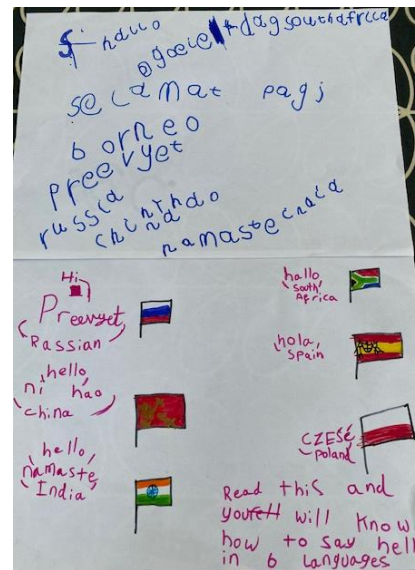 hallo
goeie dag south africa
selamat pagi
borneo
preevyet
russia
china ni hao
namaste
Hi
Preevyet
Rassian
hello
ni hao
china
hello
namaste
India
hallo
South
Africa
hola
Spain
CZEŚĆ
poland
Read this and
will know
how to say hell
in 6 languages